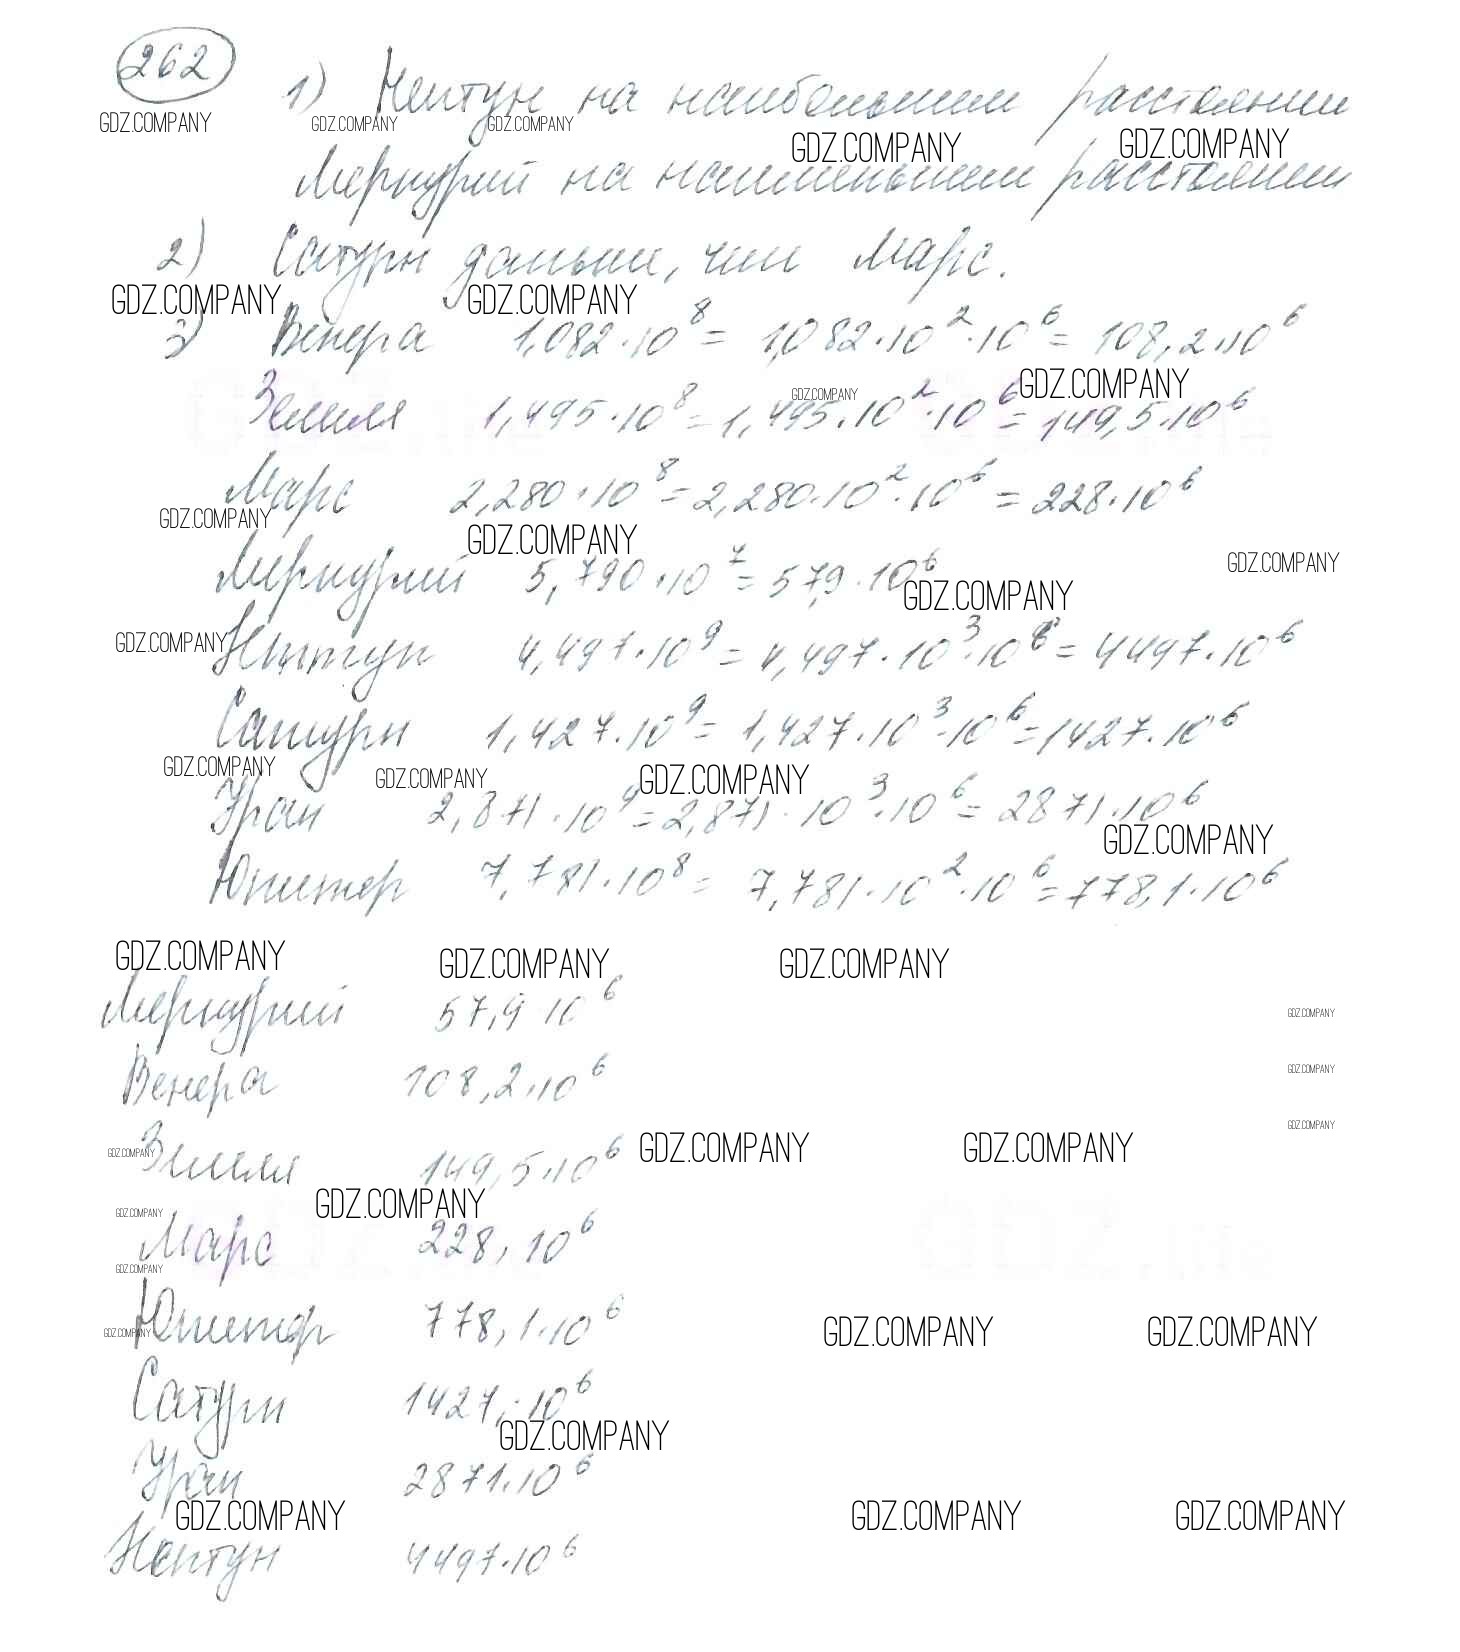 262
1) Нептун на наибольшем расстоянии
GDZ.COMPANY GDZ.COMPANY GDZ.COMPANY GDZ.COMPANY GDZ.COMPANY
Меркурий на наименьшем расстоянии
2) Сатурн дальше, чем Марс.
GDZ.COMPANY GDZ.COMPANY
3) Венера 1,082·10⁸ = 1,082·10²·10⁶ = 108,2·10⁶
GDZ.COMPANY GDZ.COMPANY
Земля 1,495·10⁸ = 1,495·10²·10⁶ = 149,5·10⁶
Марс 2,280·10⁸ = 2,280·10²·10⁶ = 228·10⁶
GDZ.COMPANY GDZ.COMPANY GDZ.COMPANY
Меркурий 5,790·10⁷ = 57,9·10⁶
GDZ.COMPANY GDZ.COMPANY
Нептун 4,497·10⁹ = 4,497·10³·10⁶ = 4497·10⁶
Сатурн 1,427·10⁹ = 1,427·10³·10⁶ = 1427·10⁶
GDZ.COMPANY GDZ.COMPANY GDZ.COMPANY
Уран 2,871·10⁹ = 2,871·10³·10⁶ = 2871·10⁶
GDZ.COMPANY
Юпитер 7,781·10⁸ = 7,781·10²·10⁶ = 778,1·10⁶
GDZ.COMPANY GDZ.COMPANY GDZ.COMPANY
Меркурий 57,9·10⁶
GDZ.COMPANY
Венера 108,2·10⁶
GDZ.COMPANY
GDZ.COMPANY
Земля 149,5·10⁶
GDZ.COMPANY GDZ.COMPANY GDZ.COMPANY
GDZ.COMPANY GDZ.COMPANY
Марс 228·10⁶
GDZ.COMPANY
Юпитер 778,1·10⁶
GDZ.COMPANY GDZ.COMPANY GDZ.COMPANY
Сатурн 1427·10⁶
GDZ.COMPANY
Уран 2871·10⁶
GDZ.COMPANY GDZ.COMPANY GDZ.COMPANY
Нептун 4497·10⁶